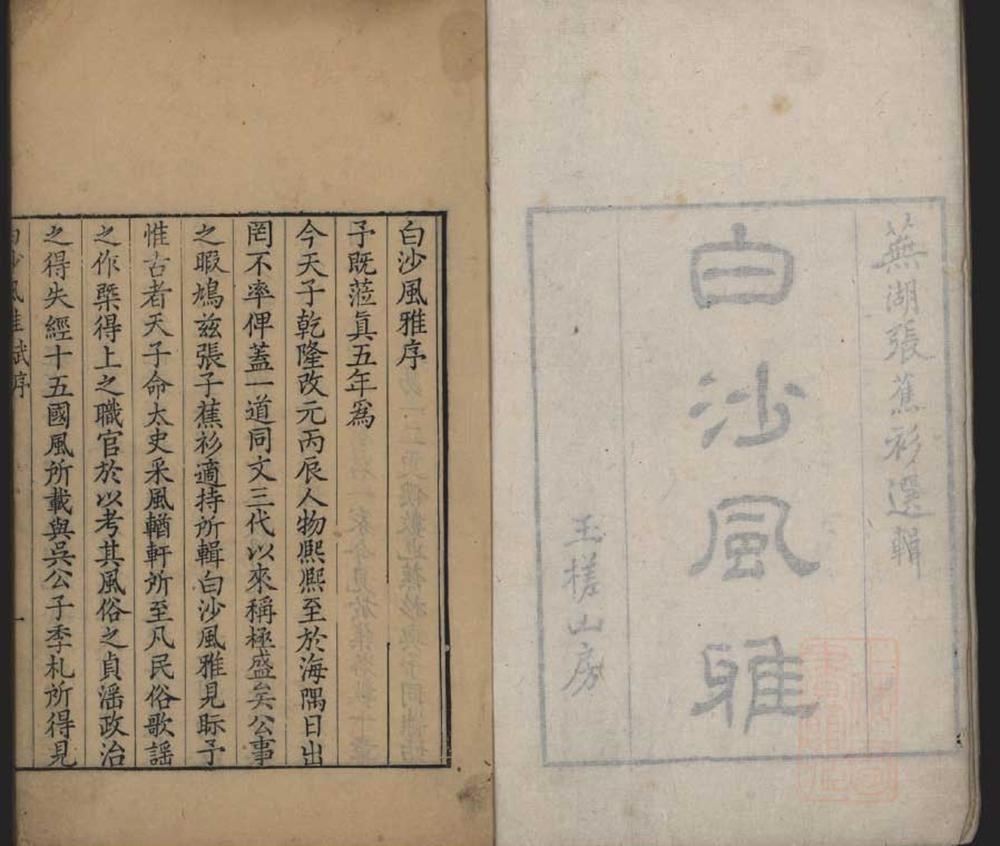 蕪湖張蕉衫選輯
白沙風雅
玉槎山房
白沙風雅序
予既蒞眞五年爲
今天子乾隆改元丙辰人物熈熈至於海隅日出
罔不率俾蓋一道同文三代以來稱極盛矣公事
之暇鳩兹張子蕉衫適持所輯白沙風雅見眎予
惟古者天子命太史采風輶軒所至凡民俗歌謡
之作槩得上之職官於以考其風俗之貞滛政治
之得失經十五國風所載與吳公子季札所得見
白沙風雅 序 一